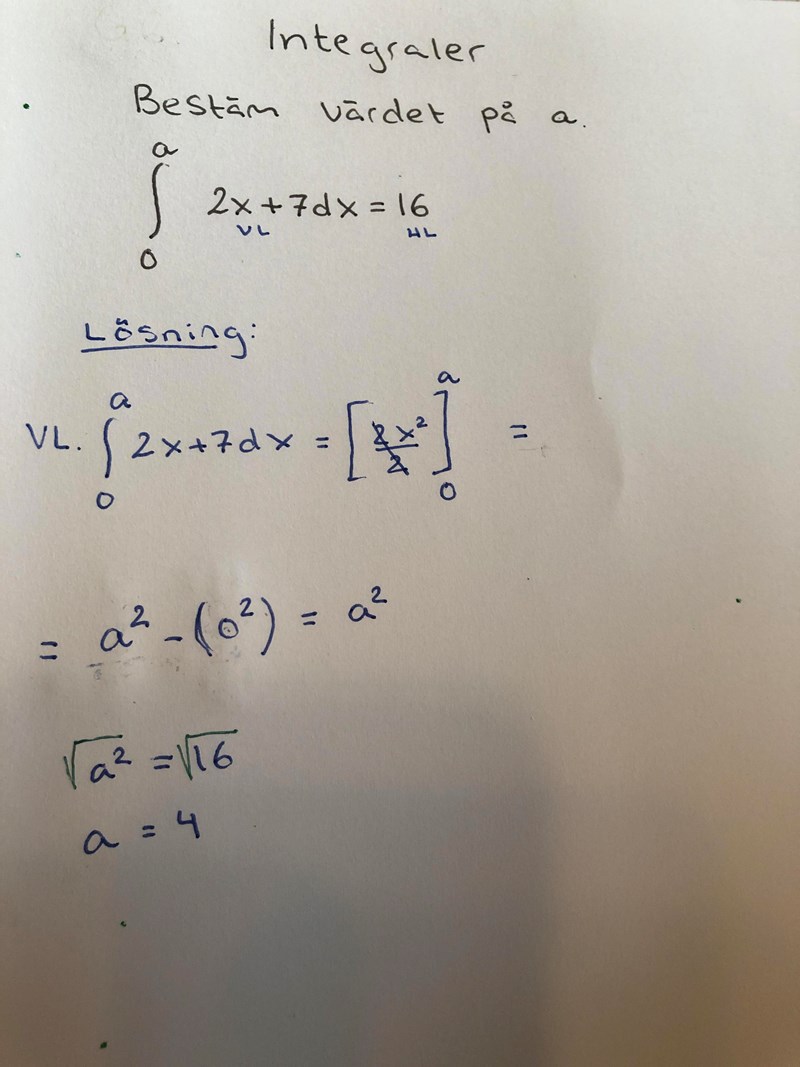 Integraler
Bestäm värdet på a.
a
∫ 2x+7dx = 16
0
VL HL
Lösning:
VL. ∫₀ᵃ 2x+7dx = [2x²/2]₀ᵃ =
= a² - (0²) = a²
√a² = √16
a = 4